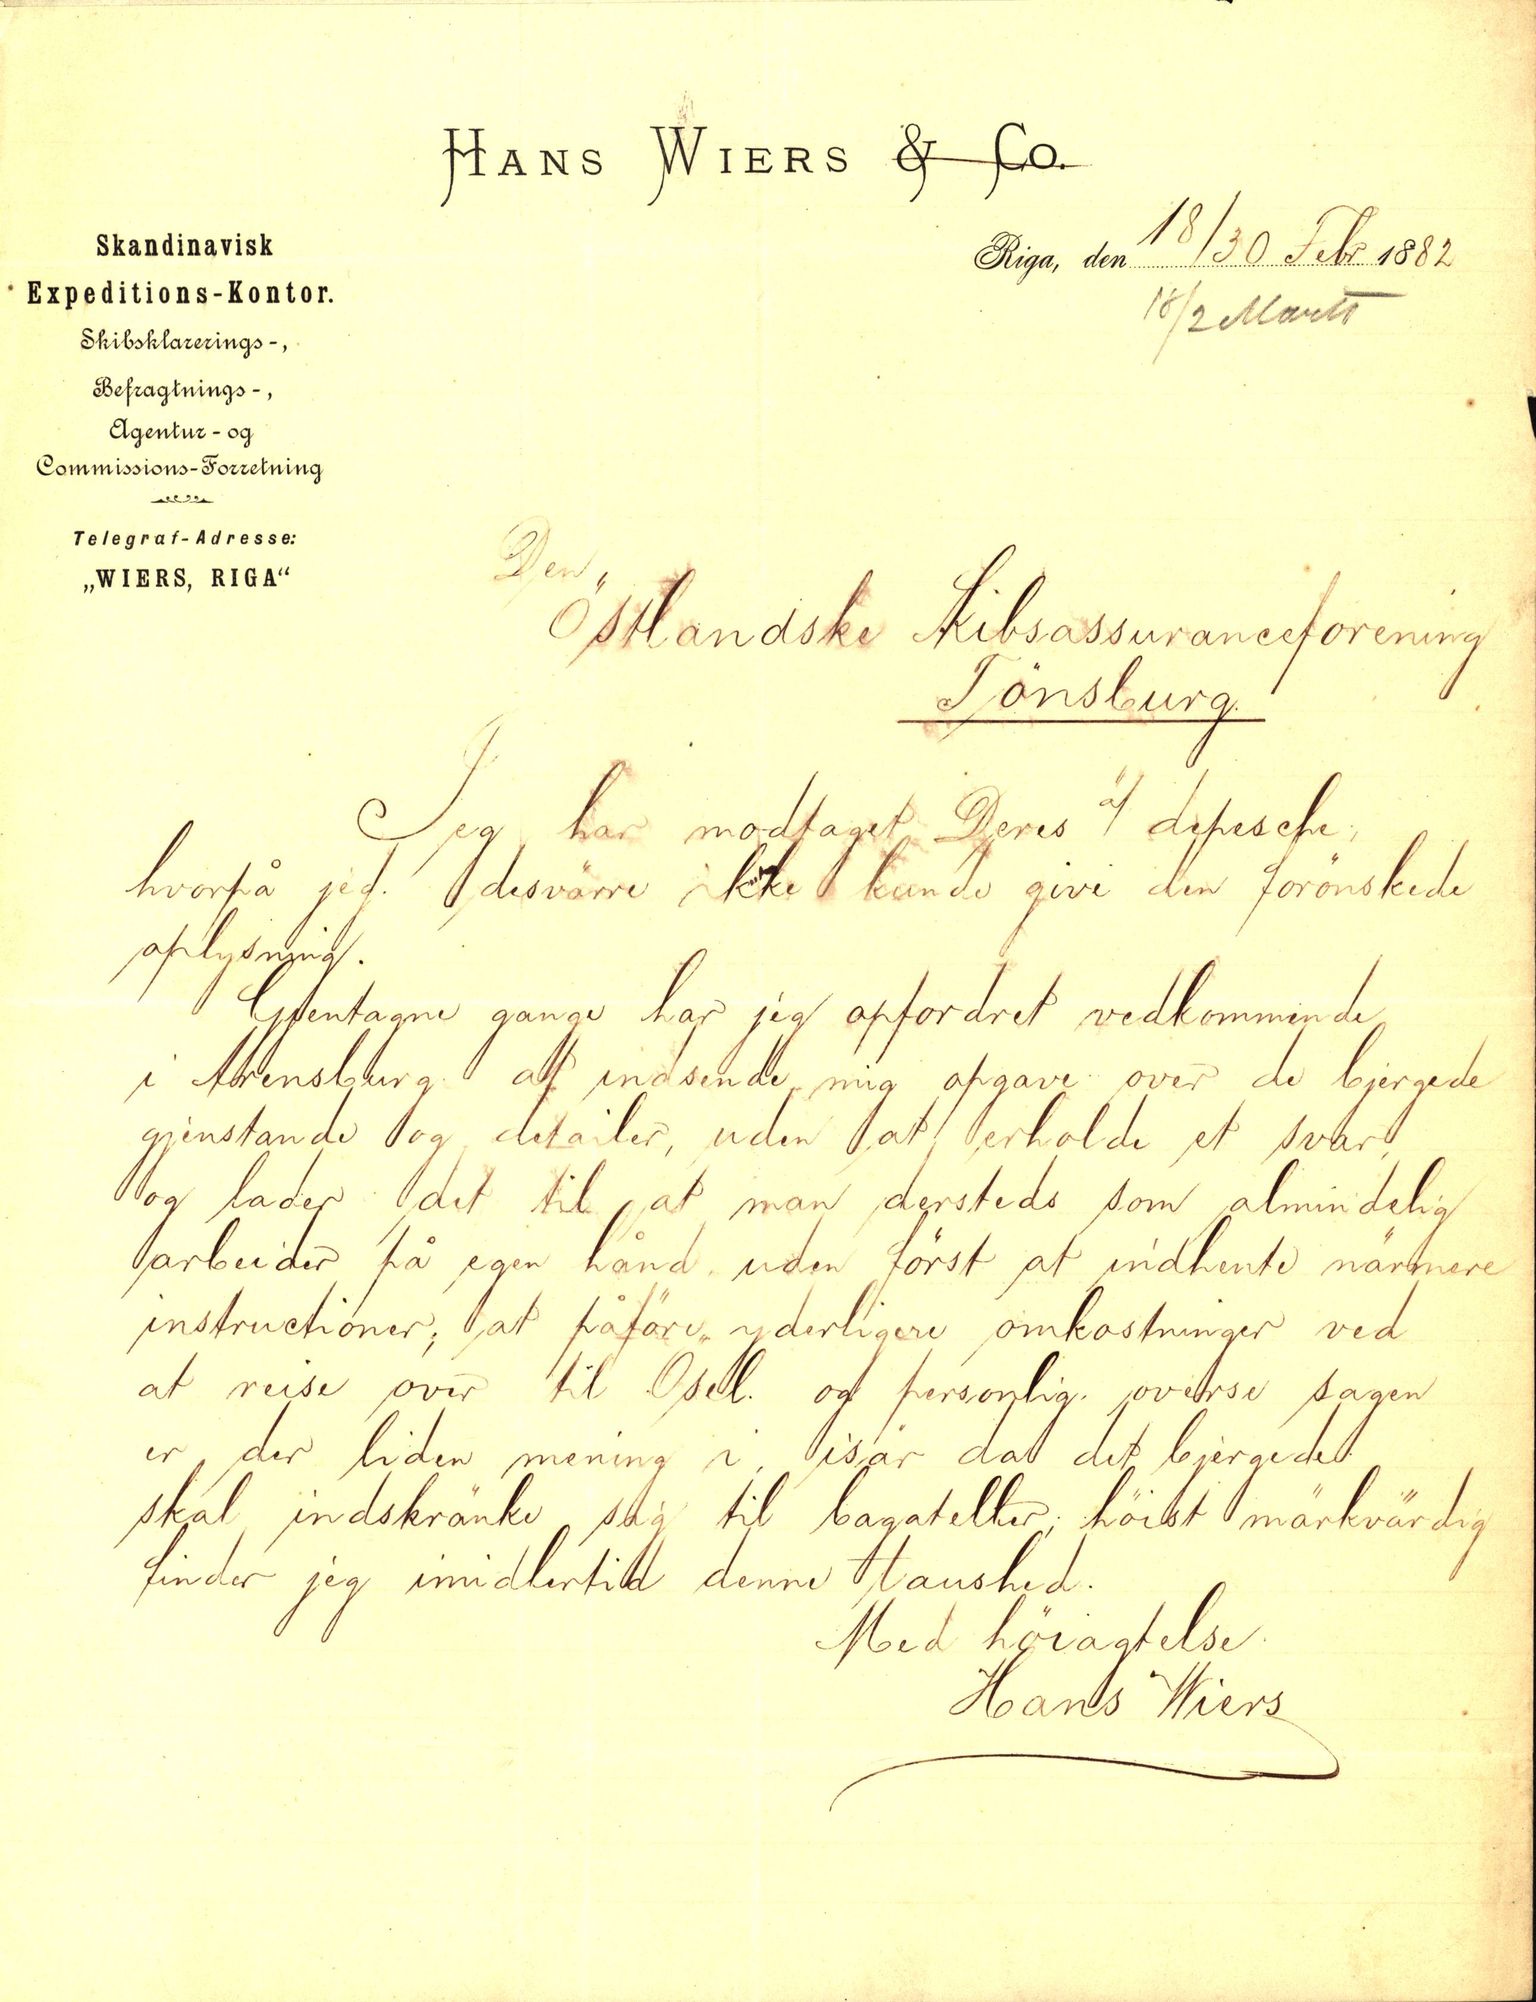 HANS WIERS & Co.
Skandinavisk
Expeditions-Kontor.
Skibsklarerings-,
Befragtnings-,
Agentur- og
Commissions-Forretning
Telegraf-Adresse:
„WIERS, RIGA“
Riga, den 18/30 Febr 1882
18/2 Marts
Den
Östlandske Skibsassuranceforening
Tönsburg.
Jeg har modtaget Deres depesche,
hvorpå jeg desvärre ikke kunde give den forönskede
oplysning.
Gjentagne gange har jeg opfordret vedkommende
i Arensburg at indsende mig opgave over de bjergede
gjenstande og detailer, uden at erholde et svar,
og lader det til at man dersteds som almindelig
arbeider på egen hånd uden först at indhente närmere
instructioner; at påföre yderligere omkostninger ved
at reise over til Ösel og personlig overse sagen
er der liden mening i, isär da det bjergede
skal indskränke sig til bagateller; höist märkvärdig
finder jeg imidlertid denne taushed.
Med höiagtelse
Hans Wiers